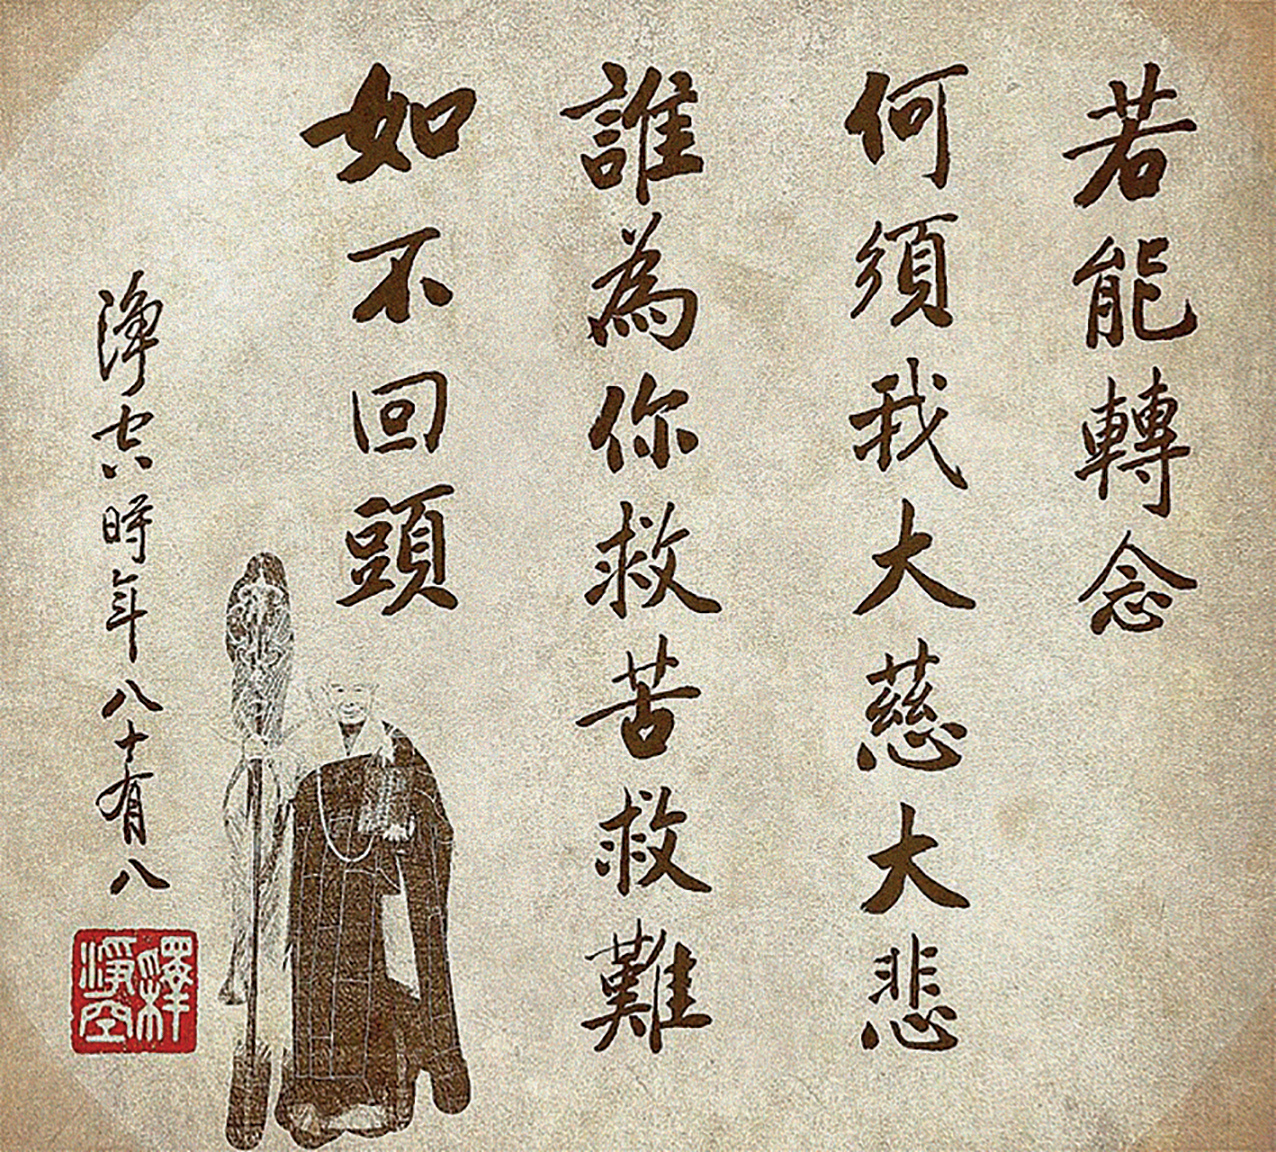 若能轉念
何須我大慈大悲
誰為你救苦救難
如不回頭
淨空時年八十有八
釋淨空